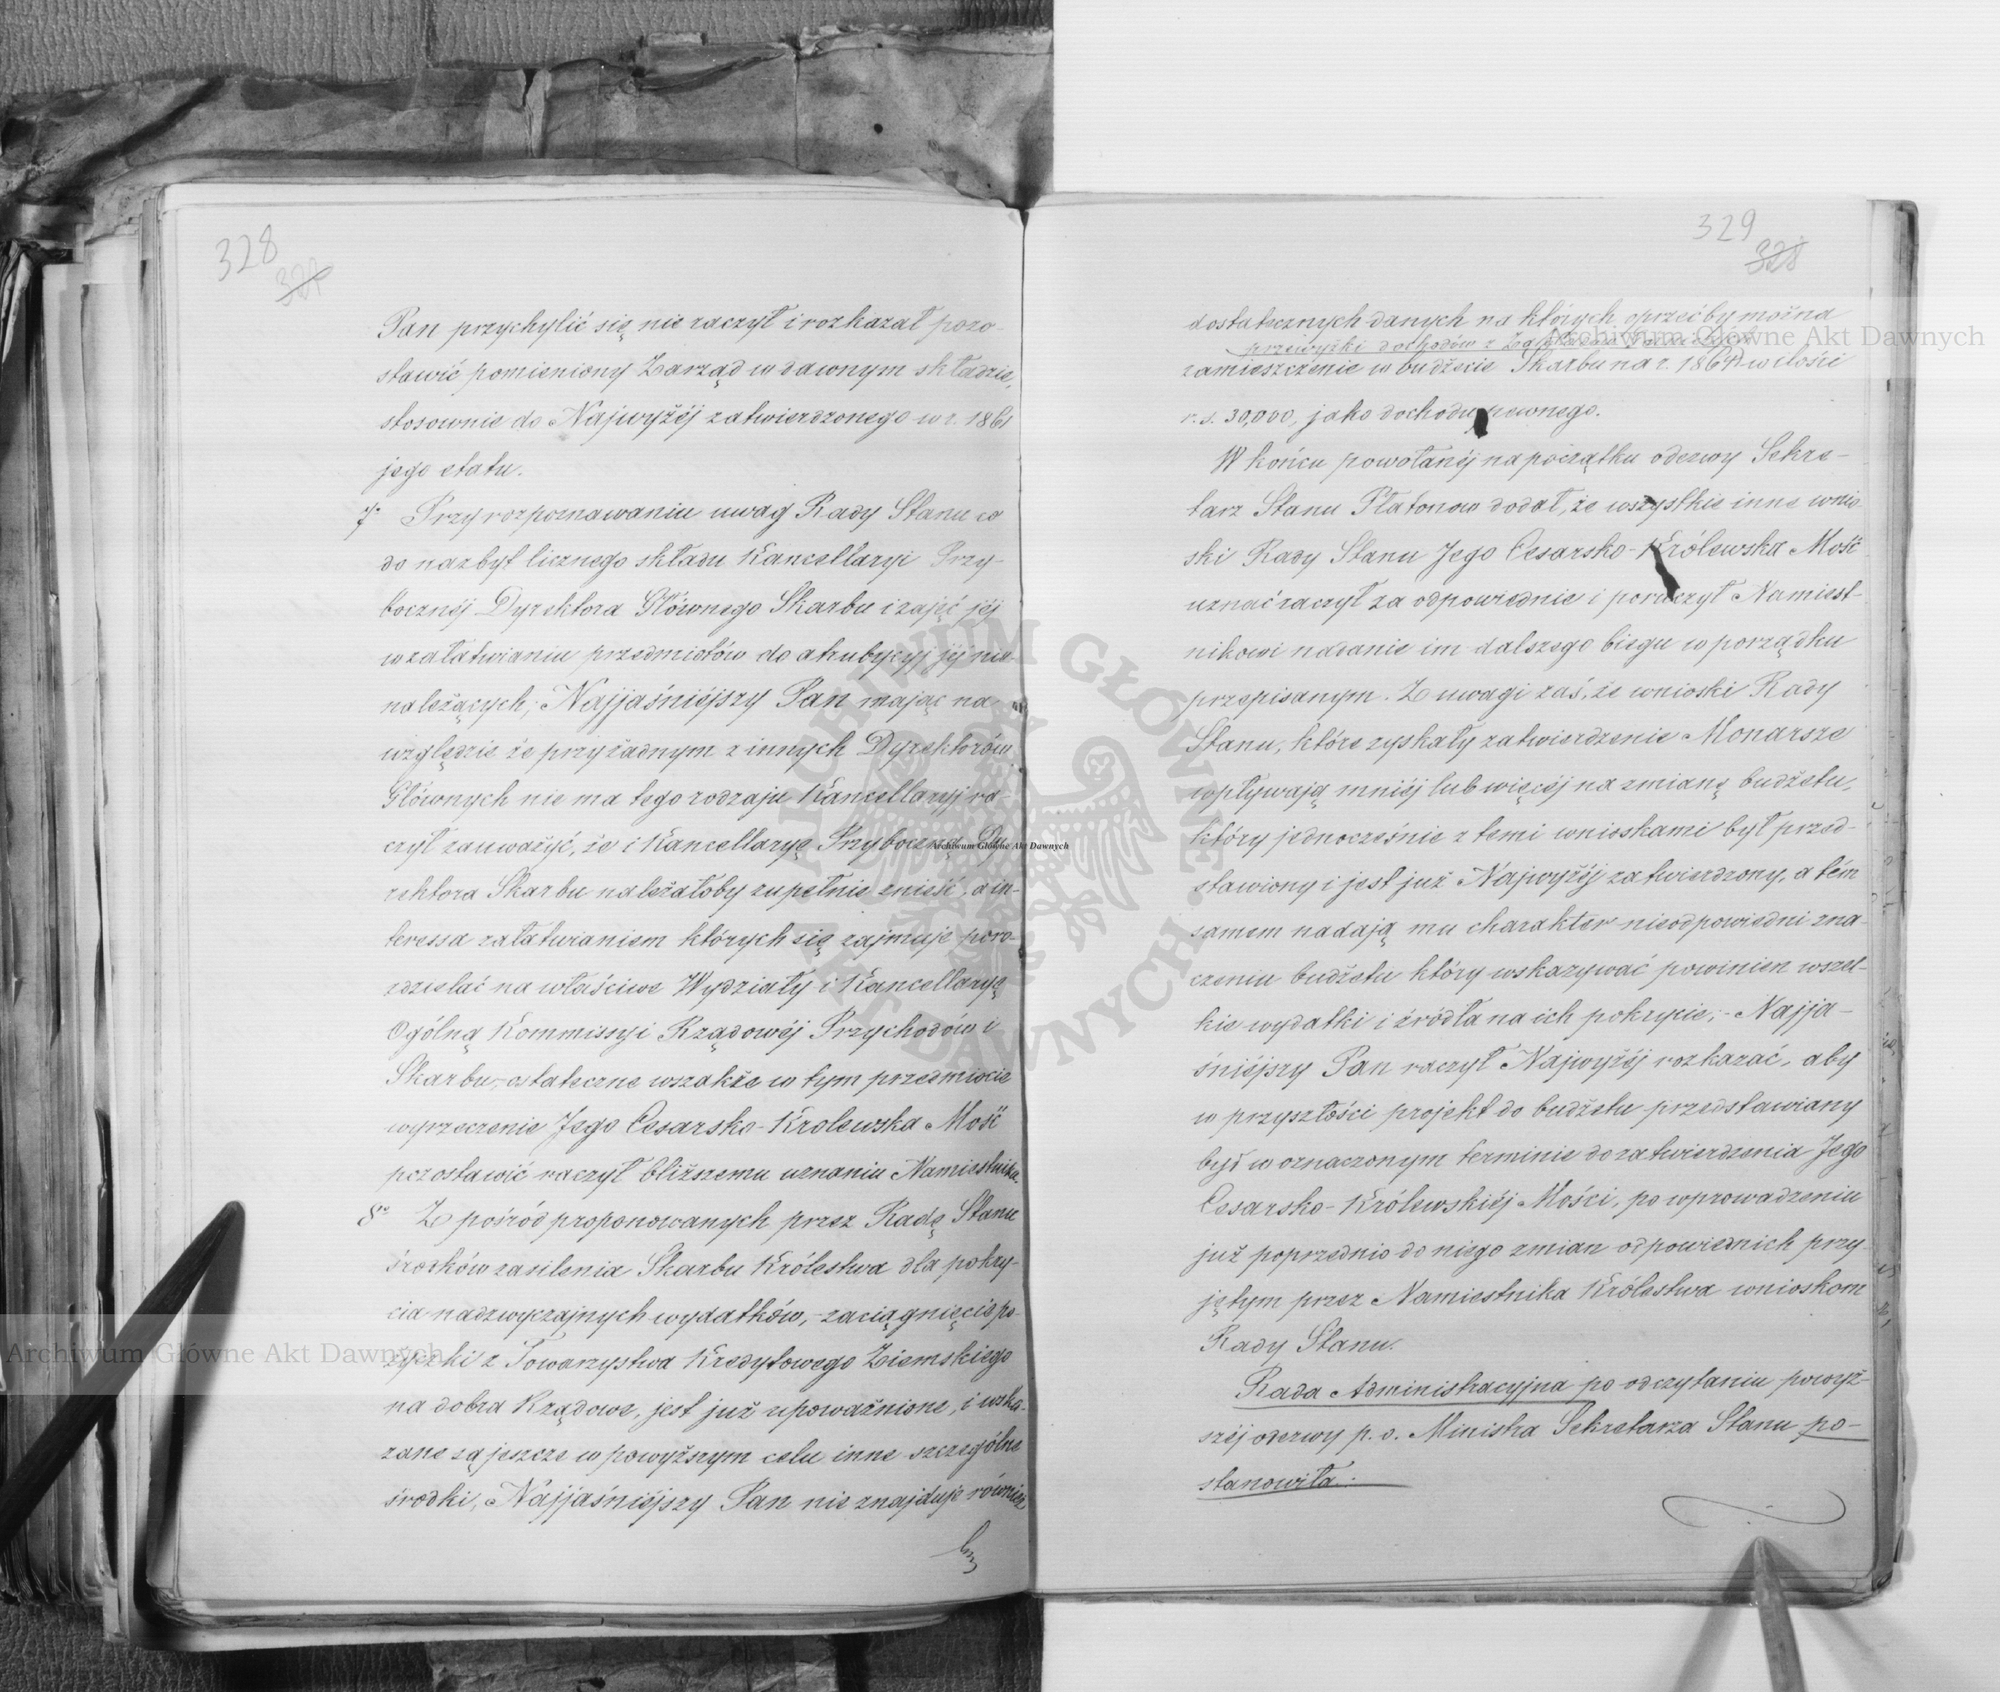 328
Pan przychylić się nie raczył i rozkazał pozo-
stawić pomieniony Zarząd w dawnym składzie,
stosownie do Najwyżéj zatwierdzonego w r. 1861
jego etatu.
7º Przy rozpoznawaniu uwag Rady Stanu co
do nazbyt licznego składu Kancellaryi Przy-
bocznéj Dyrektora Głównego Skarbu i zajęć jéj
w załatwianiu przedmiotów do atrubycyj jéj nie-
należących; Najjaśniéjszy Pan mając na
względzie że przy żadnym z innych Dyrektorów
Głównych nie ma tego rodzaju Kancellaryj ra-
czył zauważyć, że i Kancellaryę Przyboczną Dy-
rektora Skarbu należałoby zupełnie znieść, a in-
teressa załatwianiem których się zajmuje poro-
zdzielać na właściwe Wydziały i Kancellaryę
Ogólną Kommissyi Rządowéj Przychodów i
Skarbu,- ostateczne wszakże w tym przedmiocie
wyrzeczenie Jego Cesarsko-Krolewska Mość
pozostawić raczył bliższemu uznaniu Namiestnika.
8º Z pośród proponowanych przez Radę Stanu
środków zasilenia Skarbu Królestwa dla pokry-
cia nadzwyczajnych wydatków,- zaciągnięcie po-
życzki z Towarzystwa Kredytowego Ziemskiego
na dobra Rządowe, jest już upoważnione, i wska-
zane są jeszcze w powyższym celu inne szczególne
środki, Najjaśniéjszy Pan nie znajduje również
329
328
dostatecznych danych na których oprzeć by można
przewyżki dochodów z
zamieszczenie w budżecie Skarbu na r. 1864 w ilości
r. s. 30,000, jako dochodu pewnego.
W końcu powołanéj na początku odezwy Sekre-
tarz Stanu Płatonow dodał, że wszystkie inne wnio-
ski Rady Stanu Jego Cesarsko-Królewska Mość
uznać raczył za odpowiednie i poruczył Namiest-
nikowi nadanie im dalszego biegu w porządku
przepisanym. Z uwagi zaś, że wnioski Rady
Stanu, które zyskały zatwierdzenie Monarsze
wpływają mniéj lub więcéj na zmianę budżetu,
który jednocześnie z temi wnioskami był przed-
stawiony i jest już Najwyżéj zatwierdzony, a tém
samem nadają mu charakter nieodpowiedni zna-
czeniu budżetu który wskazywać powinien wszel-
kie wydatki i źródła na ich pokrycie;- Najja-
śniéjszy Pan raczył Najwyżéj rozkazać, aby
w przyszłości projekt do budżetu przedstawiany
był w oznaczonym terminie do zatwierdzenia Jego
Cesarsko-Królewskiéj Mości, po wprowadzeniu
już poprzednio do niego zmian odpowiednich przy-
jętym przez Namiestnika Królestwa wnioskom
Rady Stanu.
Rada Administracyjna po odczytaniu powyż-
széj odezwy p. o. Ministra Sekretarza Stanu po-
stanowiła:
Archiwum Główne Akt Dawnych
Archiwum Główne Akt Dawnych
Archiwum Główne Akt Dawnych
ARCHIWUM GŁÓWNE AKT DAWNYCH